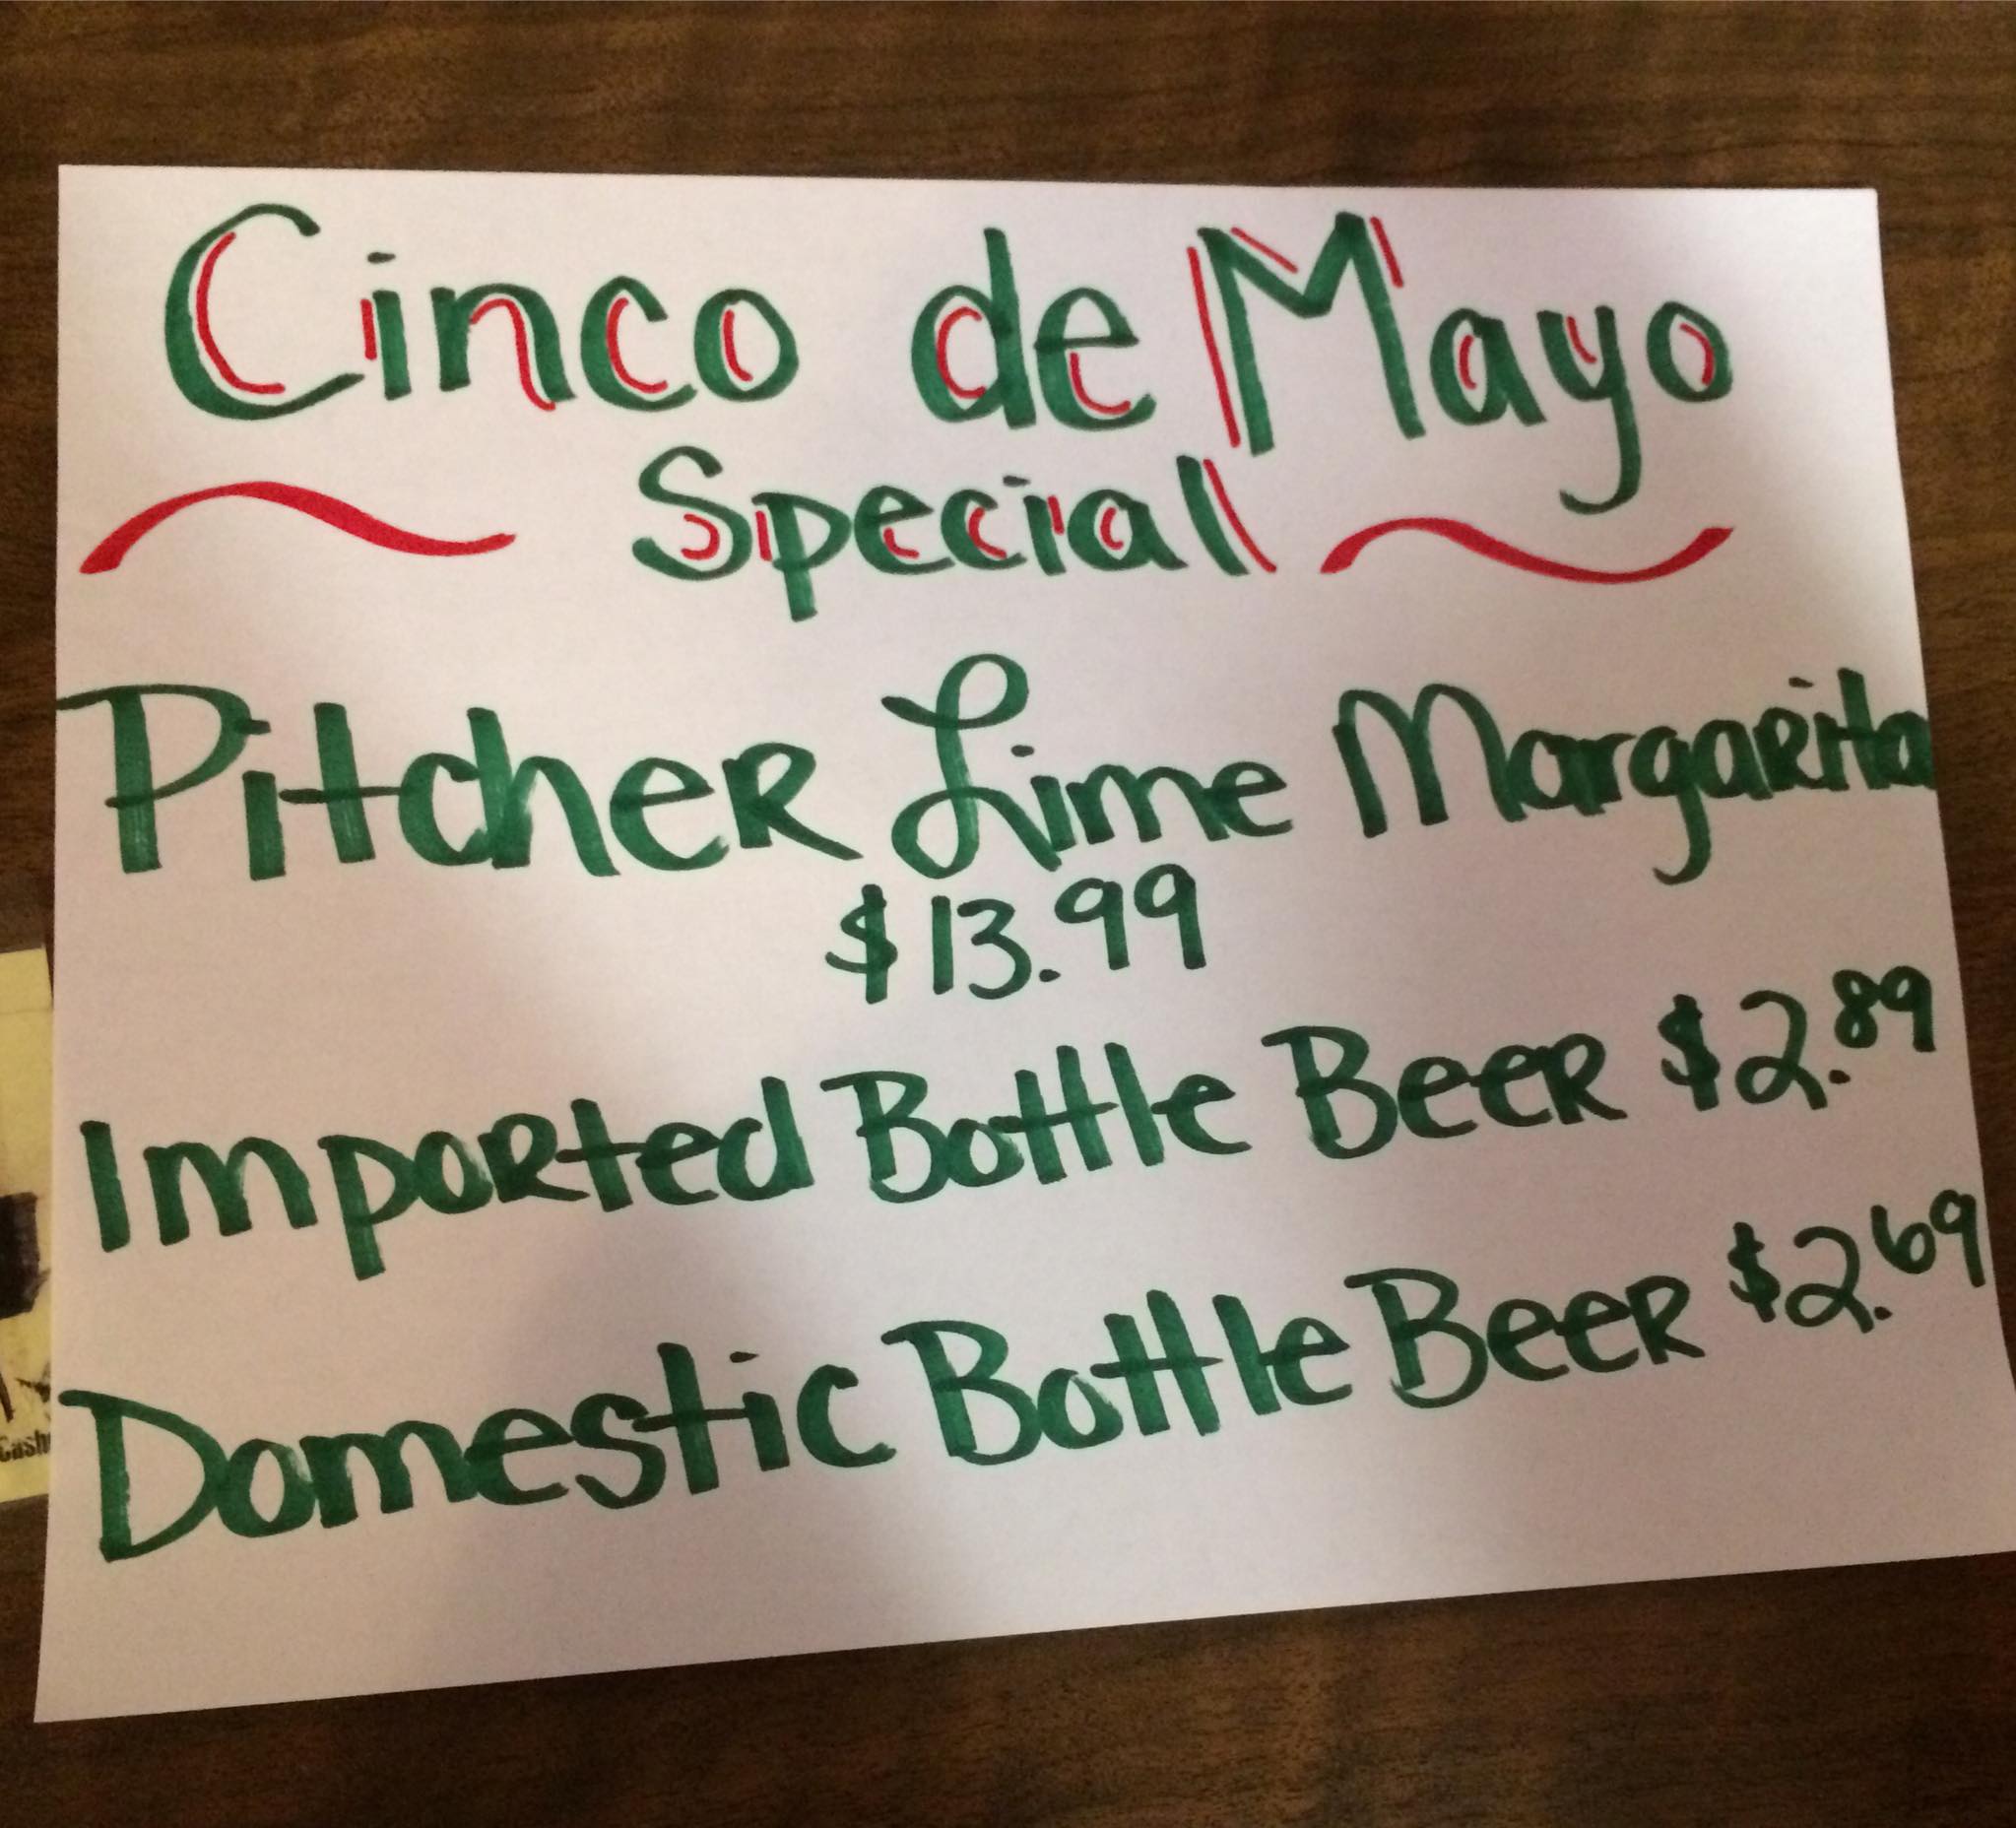 Cinco de Mayo
Special
Pitcher Lime Margarita
$13.99
Imported Bottle Beer $2.89
Domestic Bottle Beer $2.69
Cash